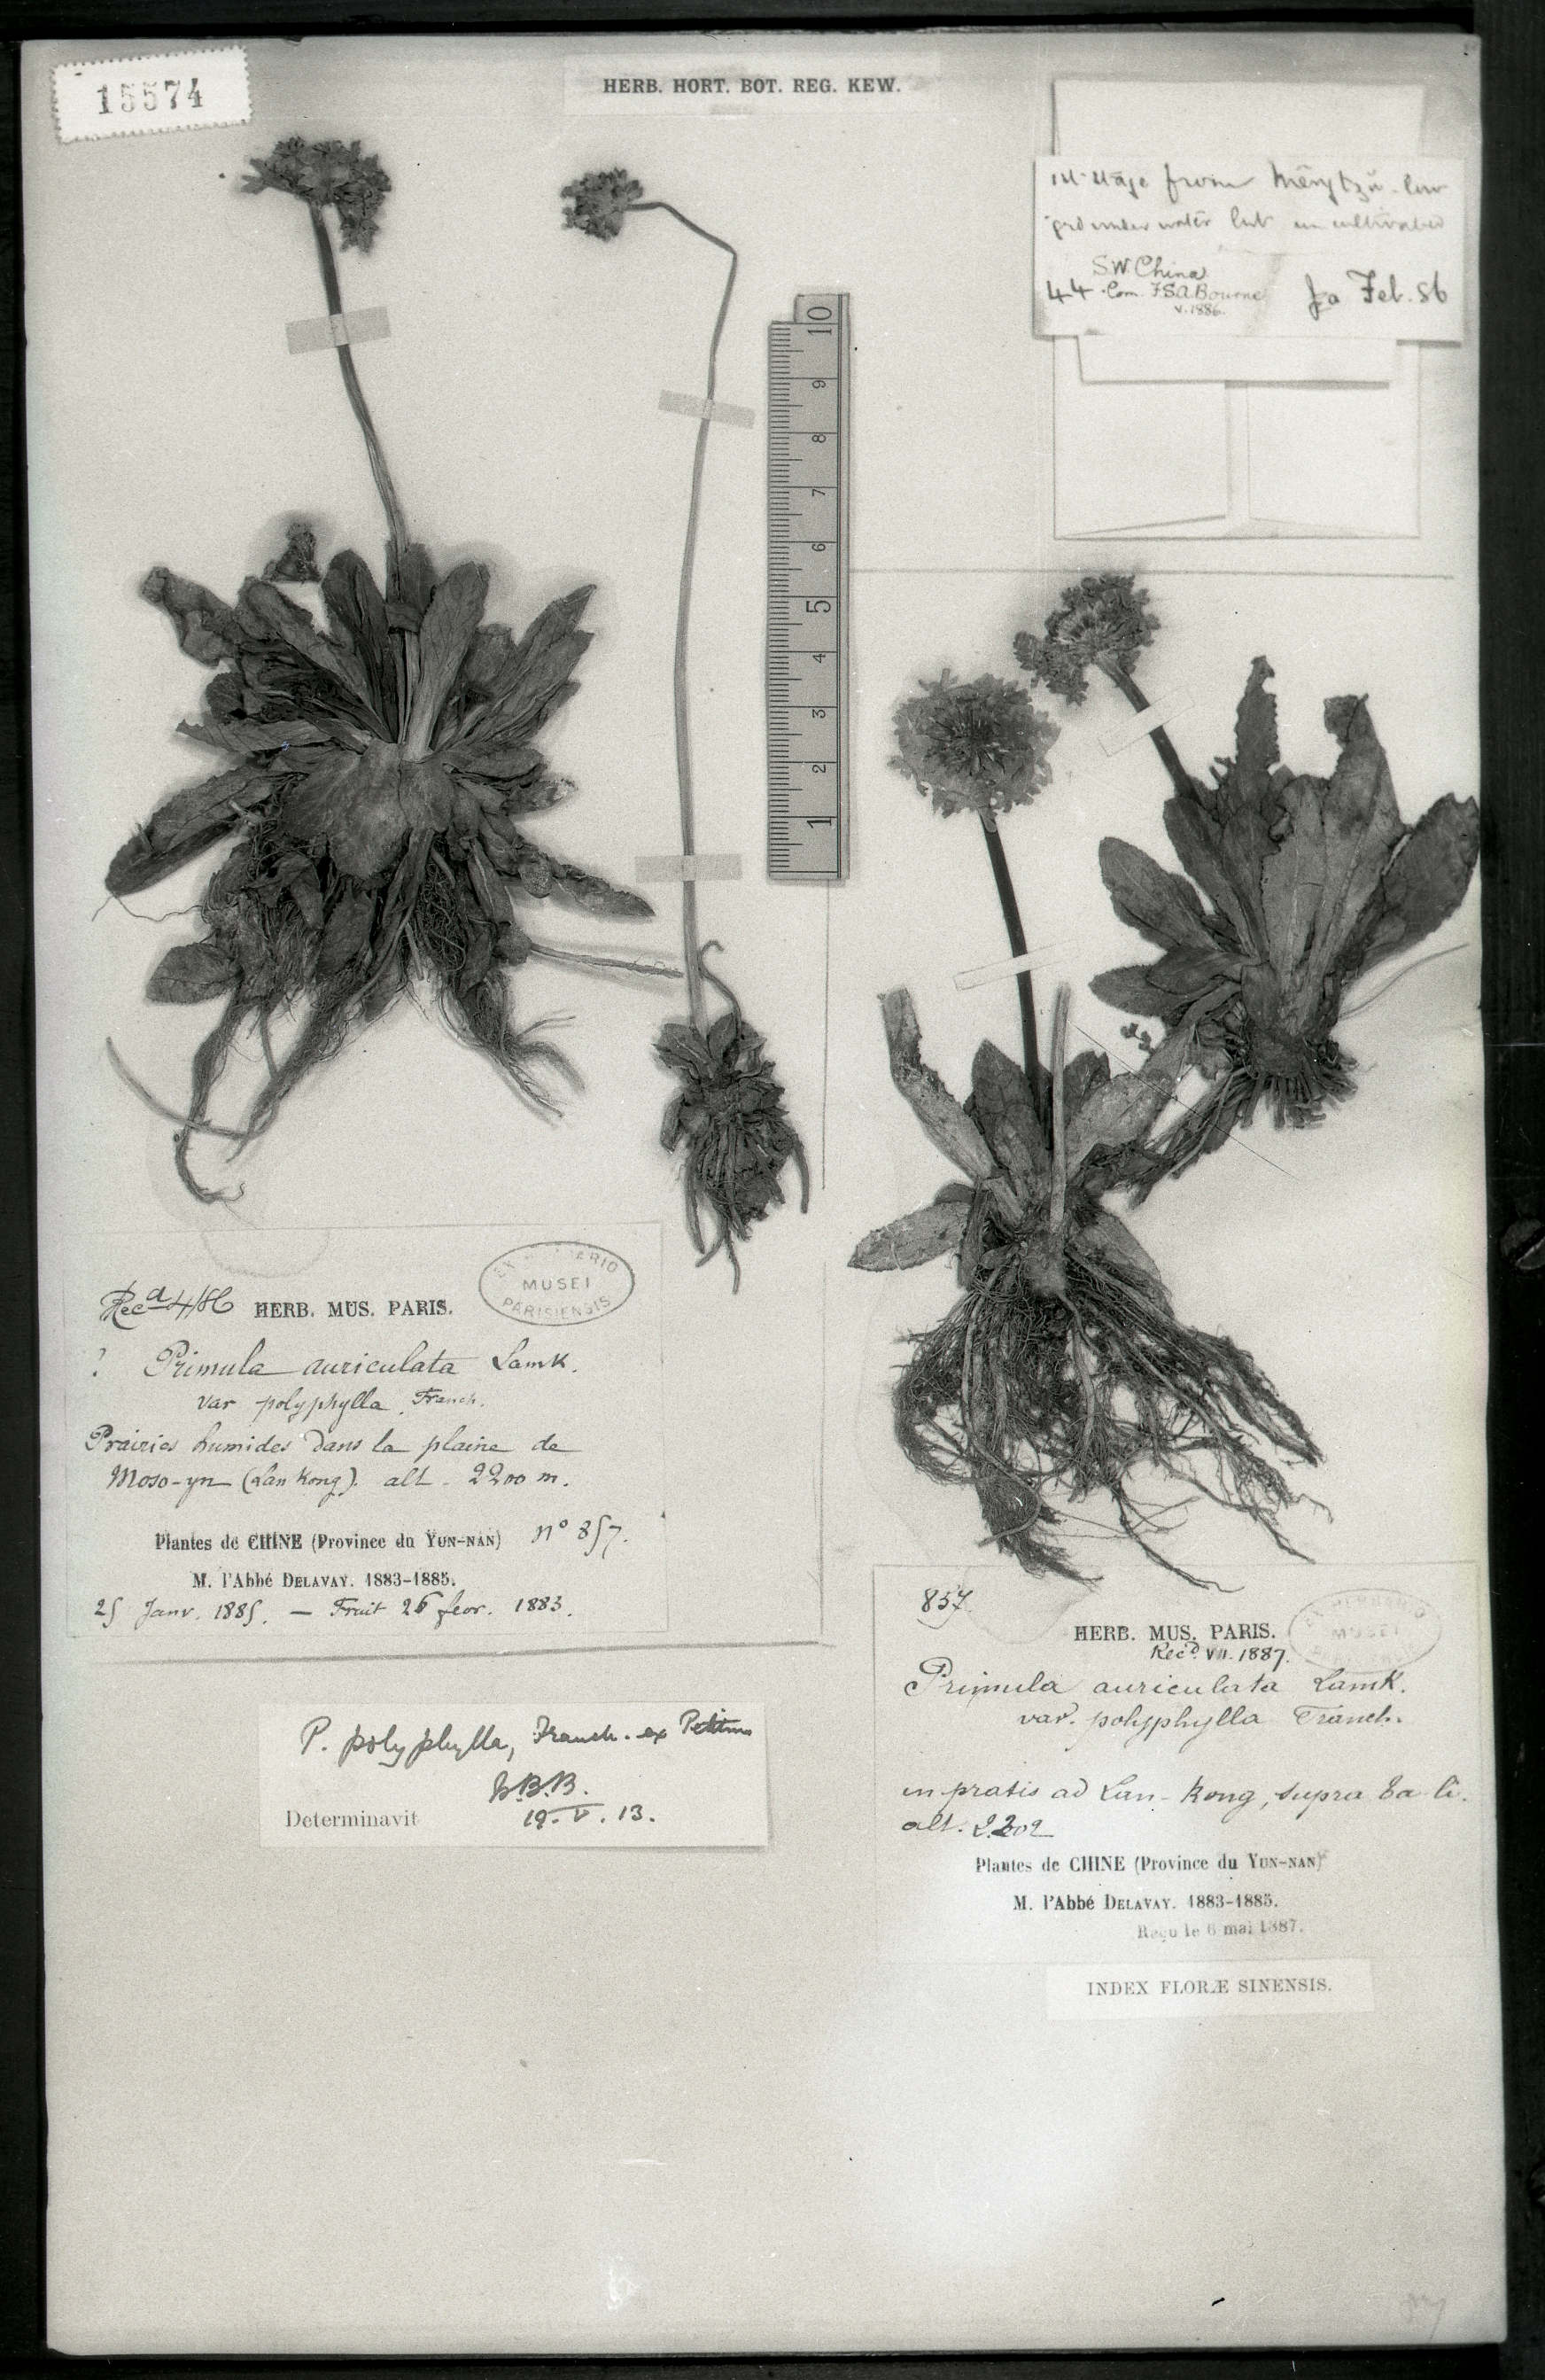 15574
HERB. HORT. BOT. REG. KEW.
1st stage from Mêngtzŭ low
grd under water but uncultivated
S.W. China
44 Com. F.S.A. Bourne Feb. 86
V. 1886.
10
9
8
7
6
5
4
3
2
1
Recd 4/86 HERB. MUS. PARIS.
EX HERBARIO
MUSEI
PARISIENSIS
? Primula auriculata Lamk.
var polyphylla Franch.
Prairies humides dans la plaine de
Moso-yn (Lan Kong). alt. 2200 m.
Plantes de CHINE (Province du YUN-NAN) n° 857.
M. l'Abbé DELAVAY. 1883-1885.
25 Janv. 1885. — Fruit 26 fevr. 1883.
P. polyphylla, Franch. ex Petitm
Determinavit
19. V. 13.
857
HERB. MUS. PARIS.
EX HERBARIO
MUSEI
Recd. VII. 1887.
Primula auriculata Lamk.
var. polyphylla Franch.
in pratis ad Lan-Kong, supra Ta-li.
alt.
Plantes de CHINE (Province du YUN-NAN)
M. l'Abbé DELAVAY. 1883-1885.
Reçu le 6 mai 1887.
INDEX FLORÆ SINENSIS.